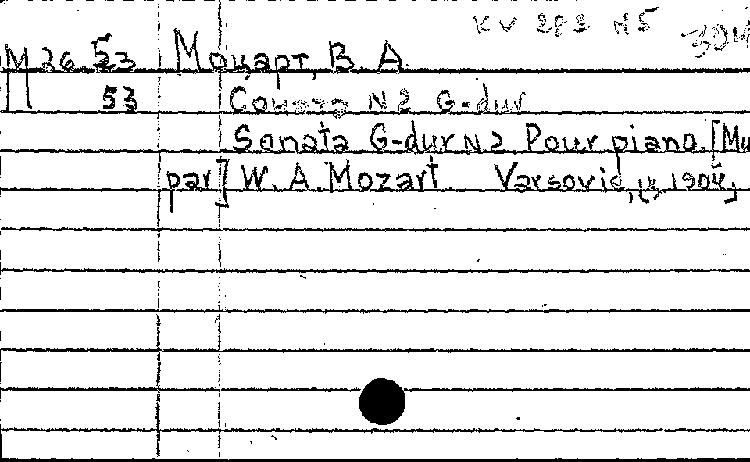 KV 283 N5
M 26 53 Моцарт, В. А.
М 53 Соната N2 G-dur
Sonata G-dur N2. Pour piano. [Mu
par] W. A. Mozart. Varsovie,